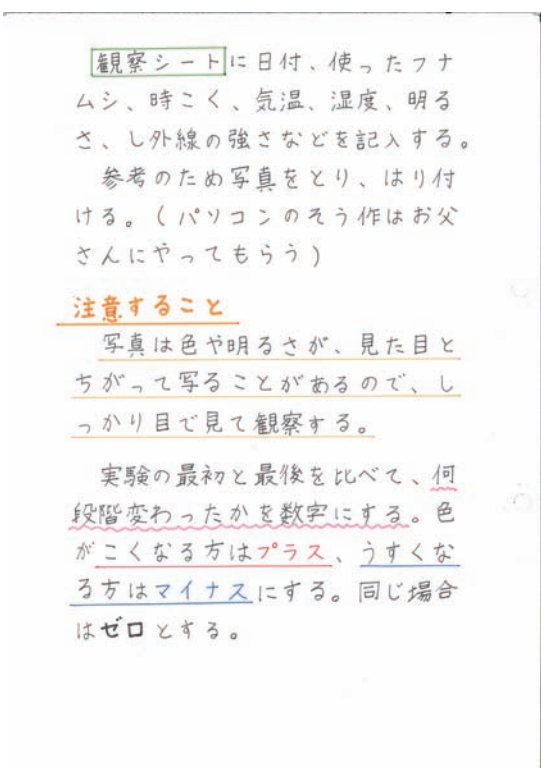 観察シートに日付、使ったフナ
ムシ、時こく、気温、湿度、明る
さ、し外線の強さなどを記入する。
参考のため写真をとり、はり付
ける。(パソコンのそう作はお父
さんにやってもらう)
注意すること
写真は色や明るさが、見た目と
ちがって写ることがあるので、し
っかり目で見て観察する。
実験の最初と最後を比べて、何
段階変わったかを数字にする。色
がこくなる方はプラス、うすくな
る方はマイナスにする。同じ場合
はゼロとする。